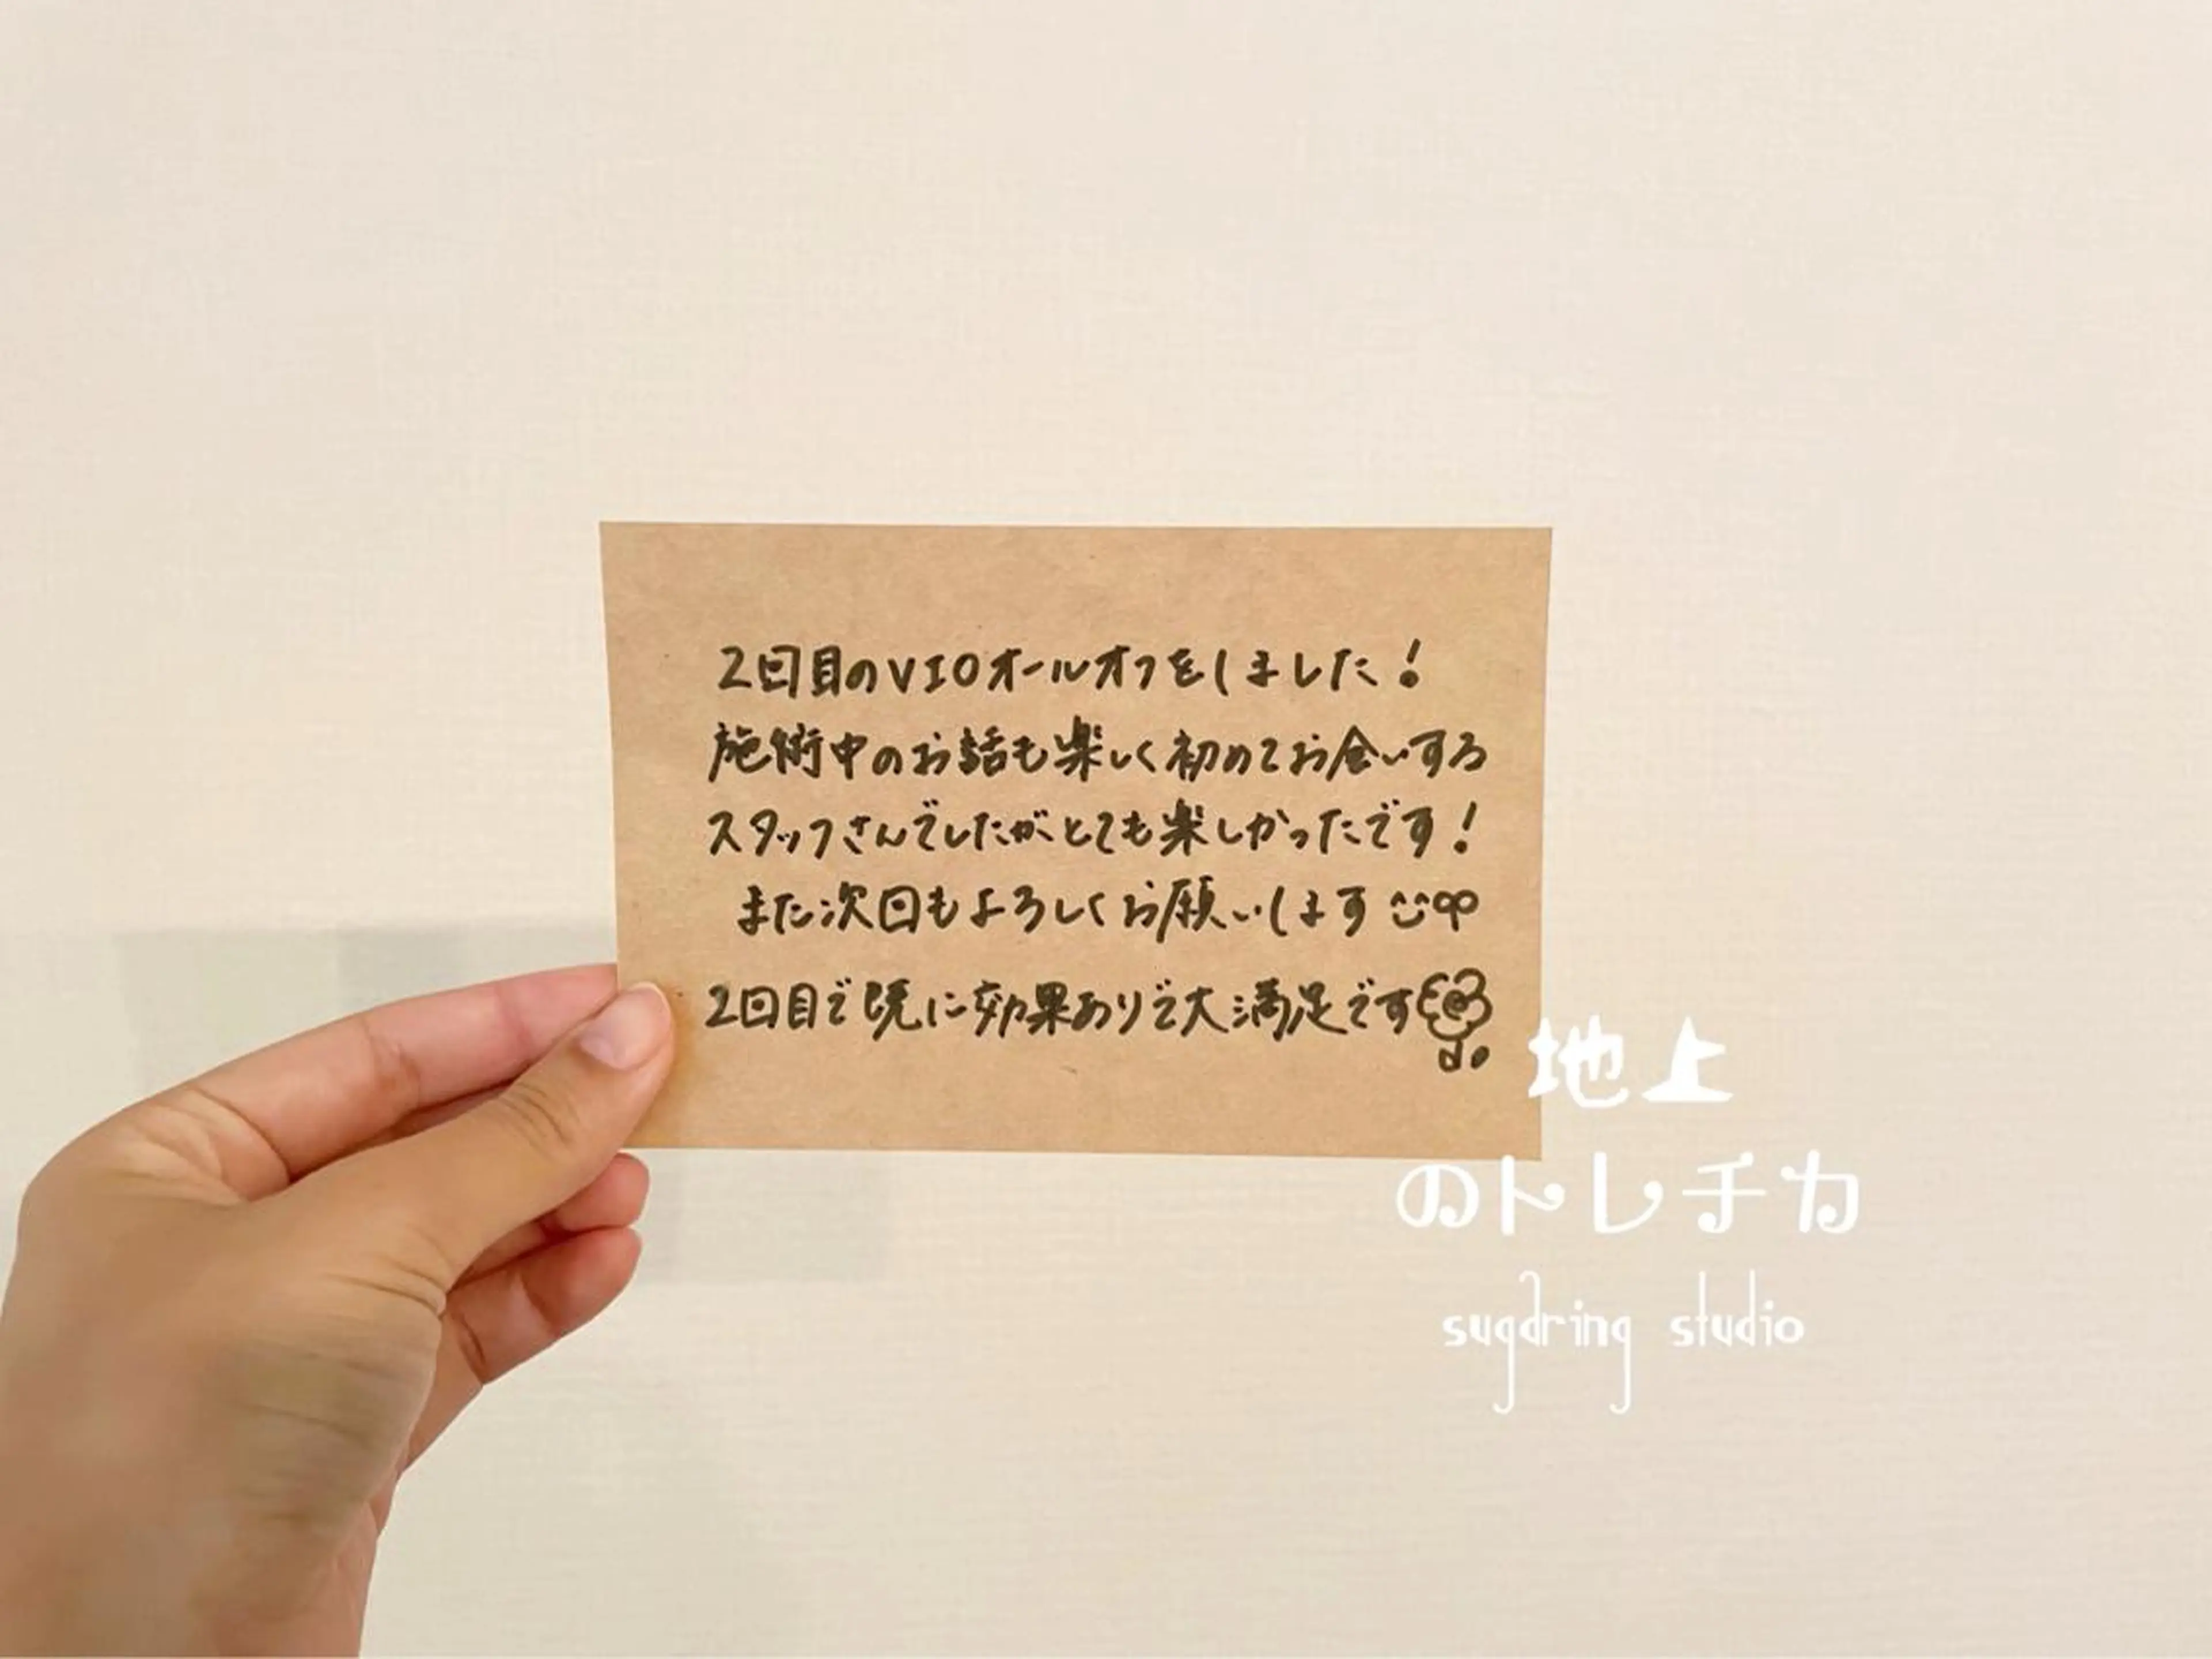 2回目のVIOオールオフをしました!
施術中のお話も楽しく初めてお会いする
スタッフさんでしたがとても楽しかったです!
また次回もよろしくお願いします
2回目で既に効果ありで大満足です
地上
のトレチカ
sugaring studio